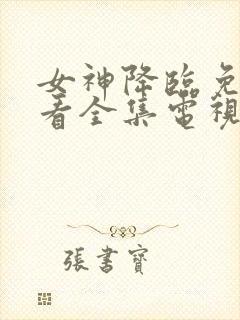 女神降临免
看全集電視
張書寶